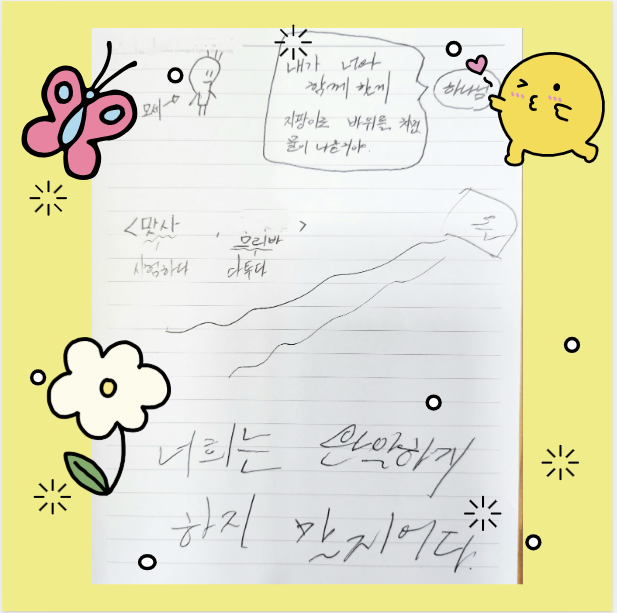 내가 너와
함께 할께
하나님
모세→
지팡이로 바위를 치면
물이 나올거야.
<맛사 , 므리바>
시험하다 다투다
너희는 완악하게
하지 말지어다.